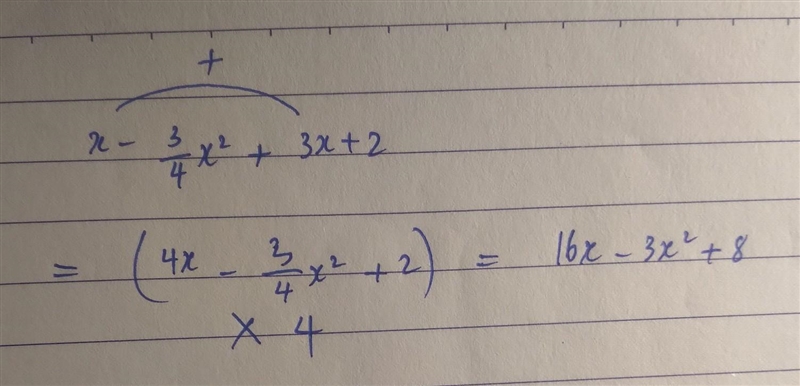 +
x - 3/4 x² + 3x + 2
= (4x - 3/4 x² + 2) = 16x - 3x² + 8
× 4